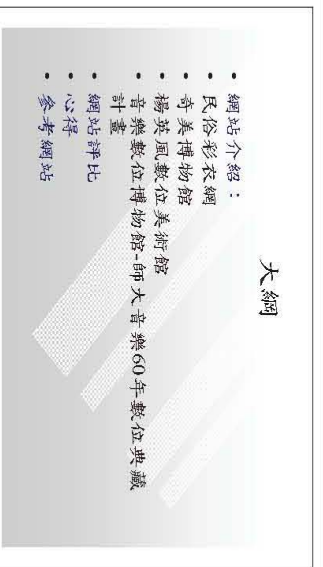 大綱
• 網站介紹：
• 民俗彩衣網
• 奇美博物館
• 楊英風數位美術館
• 音樂數位博物館-師大音樂60年數位典藏
計畫
• 網站評比
• 心得
• 參考網站